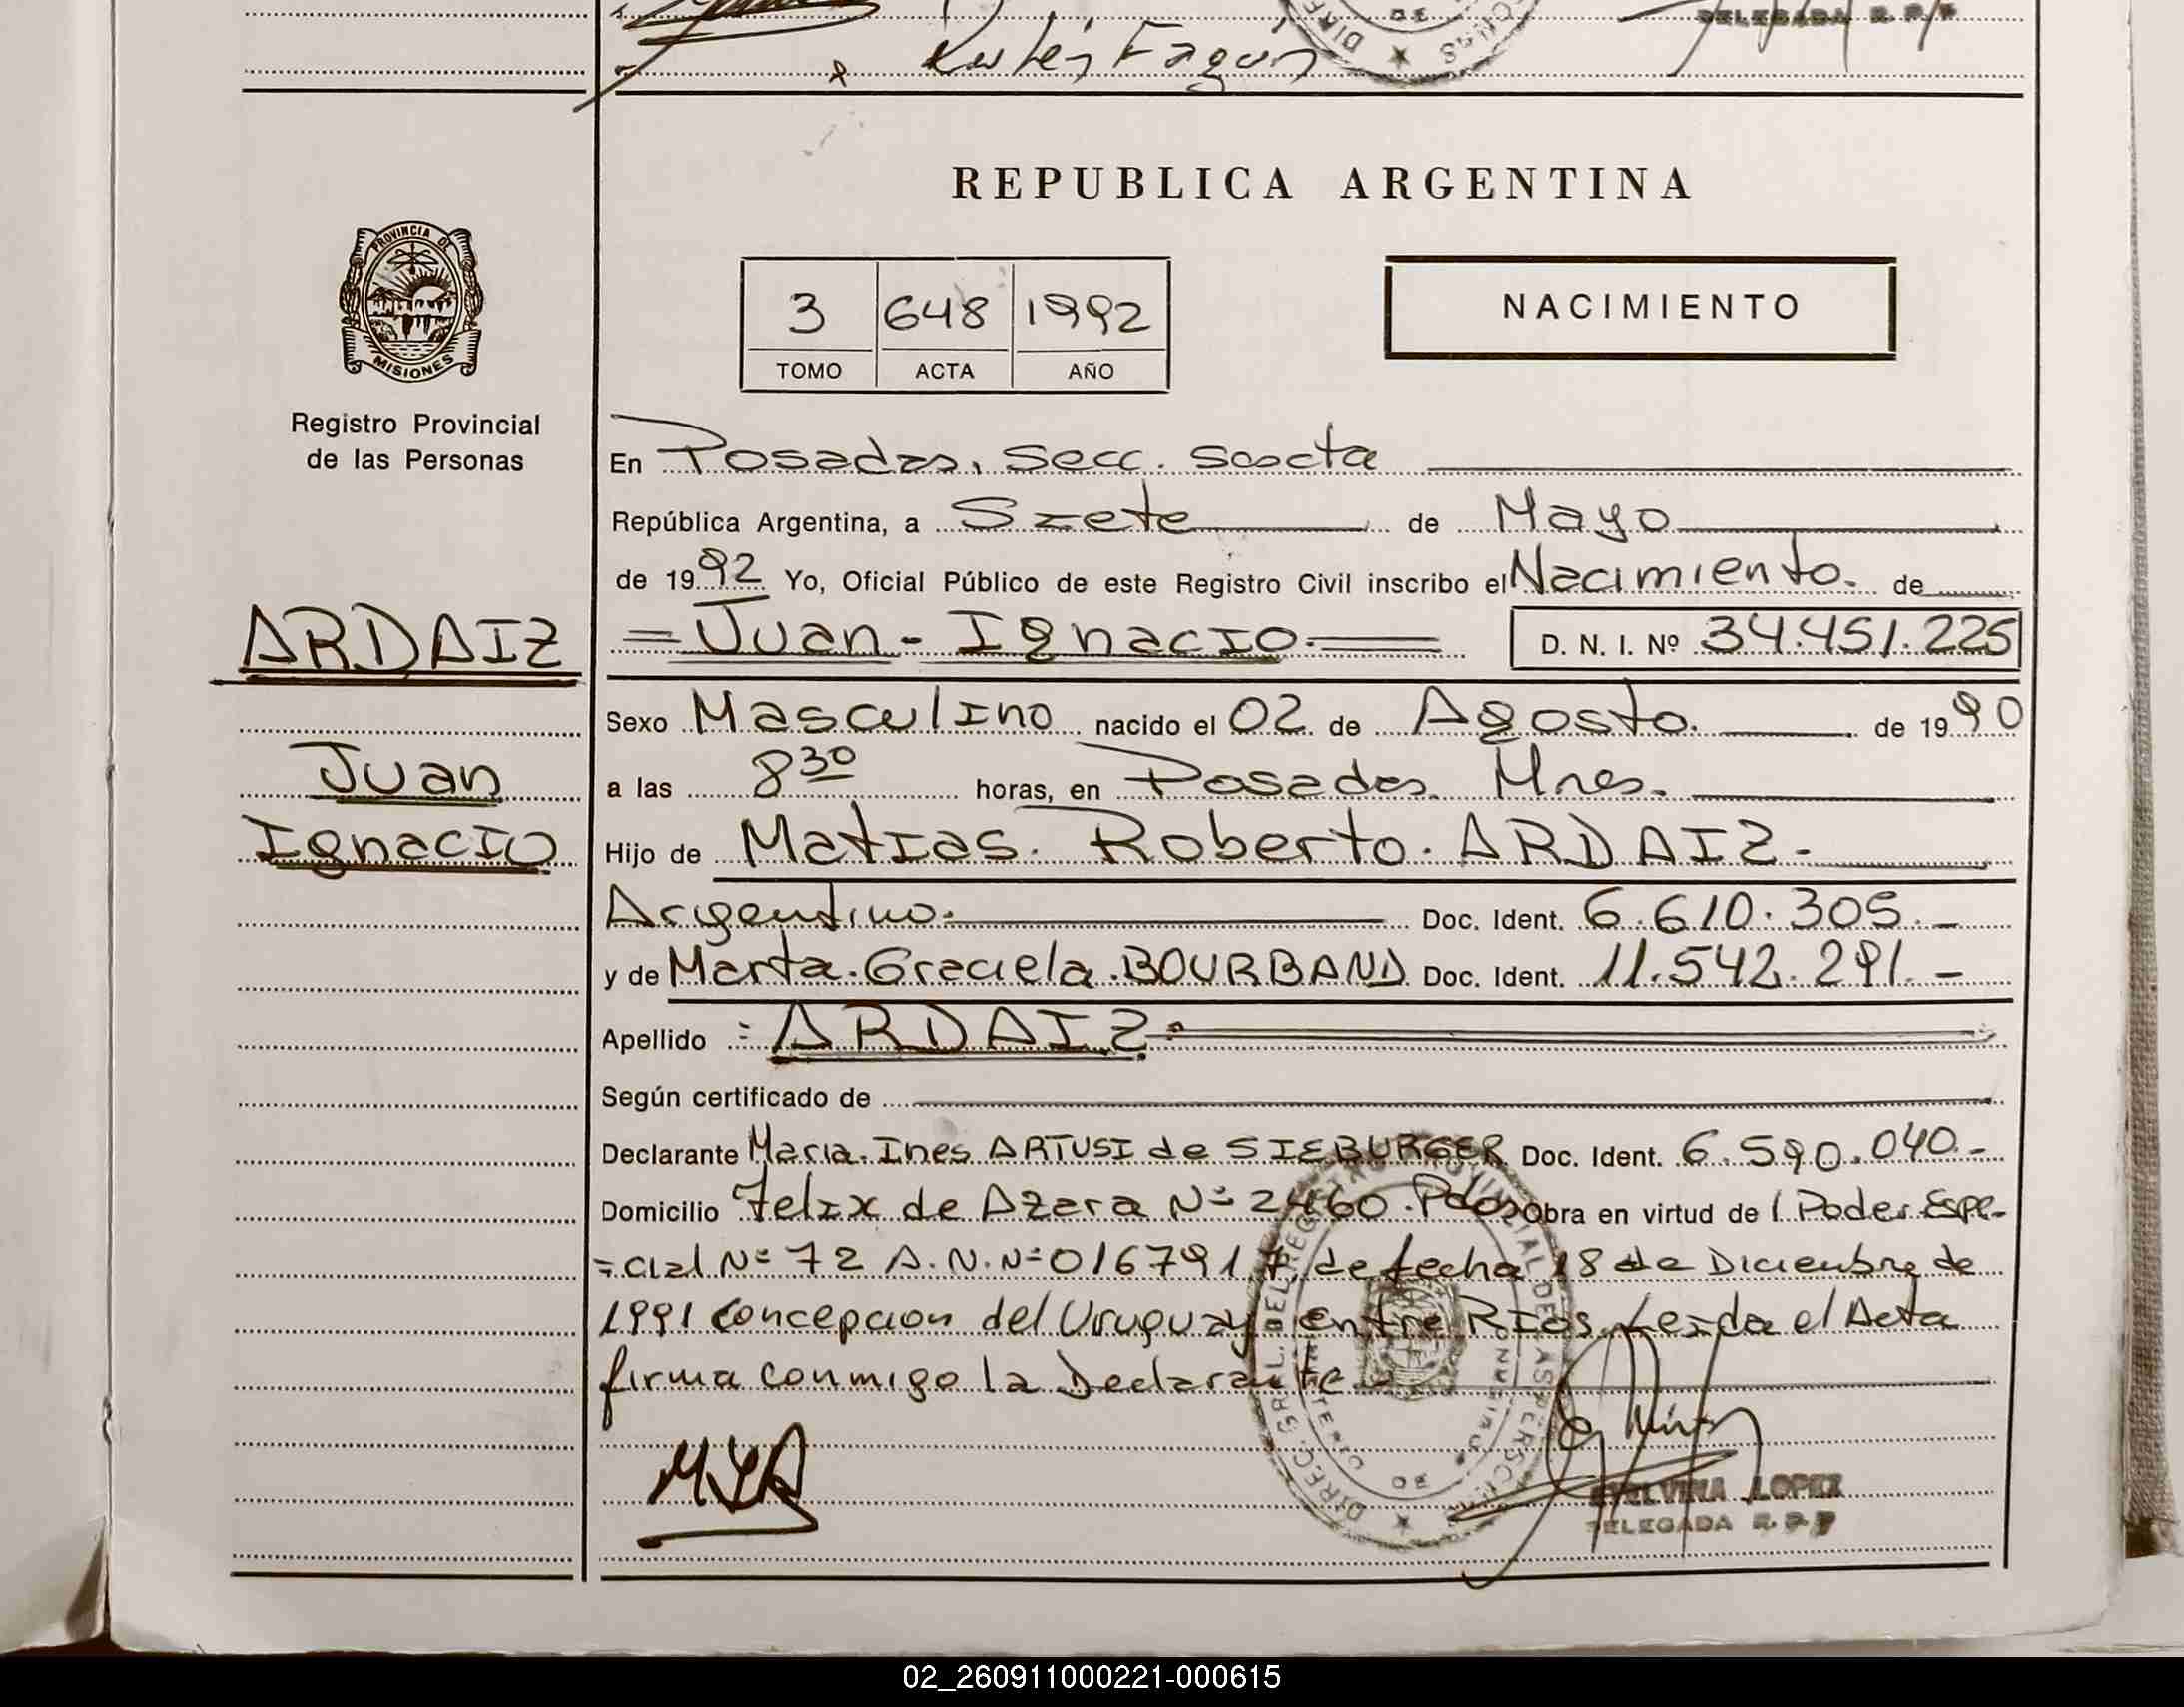 Rubén Fagún
DELEGADA R. P. P.
REPUBLICA ARGENTINA
PROVINCIA DE
MISIONES
Registro Provincial
de las Personas
3 648 1992
TOMO ACTA AÑO
NACIMIENTO
En Posadas, Secc. Sexta
República Argentina, a Siete de Mayo
de 1992 Yo, Oficial Público de este Registro Civil inscribo el Nacimiento. de
ARDAIZ
Juan
Ignacio
=Juan - Ignacio.= D. N. I. Nº 34.451.225
Sexo Masculino nacido el 02 de Agosto. de 1990
a las 8 30 horas, en Posadas. Mnes.
Hijo de Matias. Roberto. ARDAIZ.-
Argentino. Doc. Ident. 6.610.305.-
y de Marta. Graciela. BOURBAND Doc. Ident. 11.542.291.-
Apellido =ARDAIZ=
Según certificado de
Declarante Maria. Ines ARTUSI de SIEBURGER Doc. Ident. 6.590.040.-
Domicilio Felix de Azara Nº 2460. Pdas Obra en virtud de 1 Poder Espe-
=cial Nº 72 A.N.Nº 0167917, de fecha 18 de Diciembre de
1991 Concepcion del Uruguay entre Rios. Leida el Acta
firma conmigo la Declarante-
LOPEZ
DELEGADA R. P. P.
02_260911000221-000615